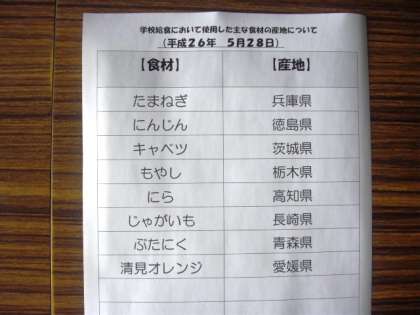 学校給食において使用した主な食材の産地について
(平成26年 5月28日)
【食材】 【産地】
たまねぎ 兵庫県
にんじん 徳島県
キャベツ 茨城県
もやし 栃木県
にら 高知県
じゃがいも 長崎県
ぶたにく 青森県
清見オレンジ 愛媛県